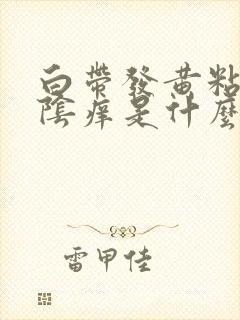 白帶發黃粘
陰痒是什麼
雷甲佳